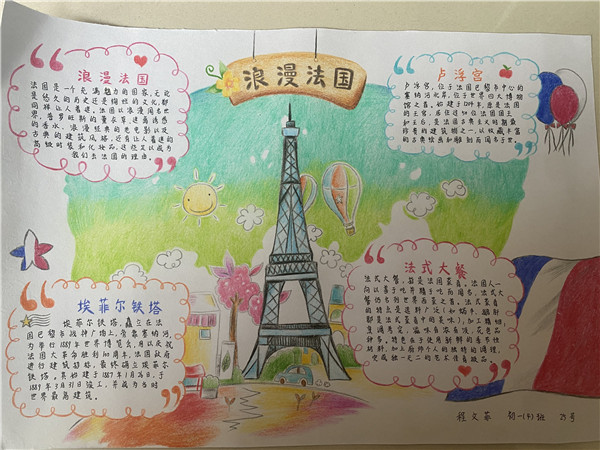 浪漫法国
浪漫法国
法国是一个充满魅力的国家,无论
是悠久的历史还是绚烂的文化,都
同样让人着迷。法国以浪漫闻名世
界,普罗旺斯的薰衣草,迷离诱惑
的香水,浪漫经典的老电影以及
古典的建筑风格,还有让人着迷的
高级时装和化妆品,这些又以成为
我们去法国的理由。
卢浮宫
卢浮宫,位于法国巴黎市中心的
塞纳河北岸,位于世界四大博物
馆之首。始建于1204年,原是法国
的王宫,居住过50位法国国王
和王后,是法国古典主义时期最
珍贵的建筑物之一,以收藏丰富
的古典绘画和雕刻而闻名于世。
埃菲尔铁塔
埃菲尔铁塔,矗立在法
国巴黎市战神广场上,旁靠塞纳河,
为举行1889年世界博览会,用以庆祝
法国大革命胜利100周年,法国政府
进行建筑招标,最终确立埃菲尔
铁塔。其始建于1887年1月26日,于
1889年3月31日竣工,并成为当时
世界最高建筑。
法式大餐
法式大餐,即是法国菜肴。法国人一
向以善于吃并精于吃而闻名,法式大
餐至今
的特点是选料广泛
都是法式菜肴中的美味),加工精细,
烹调考究,滋味有浓有淡,花色品
种多,特色在于使用新鲜的季节性
材料,加上厨师个人的独特的调理,
完成独一无二的艺术佳肴极品。
程文 初一(7)班 25号